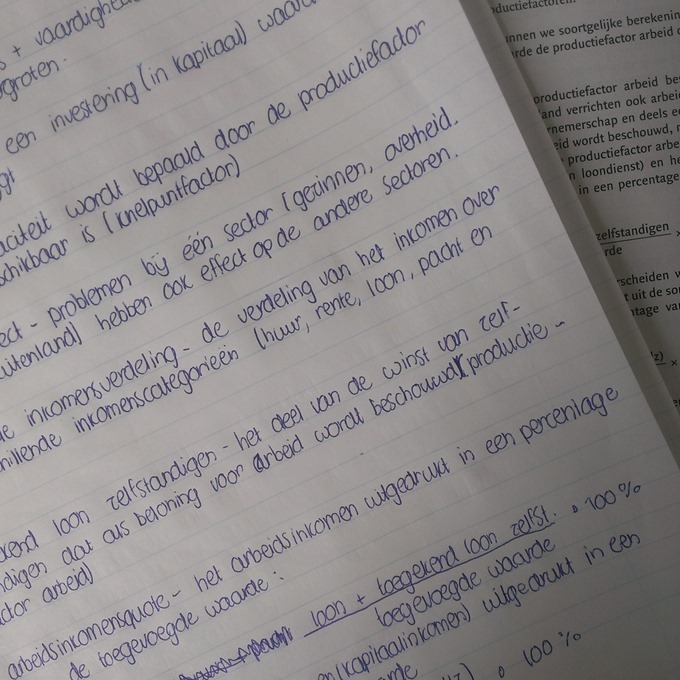 s + vaardighe
groten.
een investering (in kapitaal) waard
gt
aciteit wordt bepaald door de productiefactor
schikbaar is (knelpuntfactor)
ect - problemen bij één sector (gezinnen, overheid.
uitenland) hebben ook effect op de andere sectoren.
le inkomensverdeling - de verdeling van het inkomen over
hillende inkomenscategorieën (huur, rente, loon, pacht en
kend loon zelfstandigen - het deel van de winst van zelf-
ndigen dat als beloning voor arbeid wordt beschouwd (productie -
ctor arbeid)
arbeidsinkomensquote - het arbeidsinkomen uitgedrukt in een percentage
de toegevoegde waarde :
loon + toegekend loon zelfst. • 100 %
toegevoegde waarde
en (kapitaalinkomen) uitgedrukt in een
arde
z) • 100 %
ductiefactoren.
nnen we soortgelijke berekenin
rde de productiefactor arbeid
productiefactor arbeid bes
and verrichten ook arbei
rnemerschap en deels e
eid wordt beschouwd, r
productiefactor arbe
n loondienst) en he
in een percentage
zelfstandigen ×
rde
rscheiden w
t uit de so
tage va
z) ×